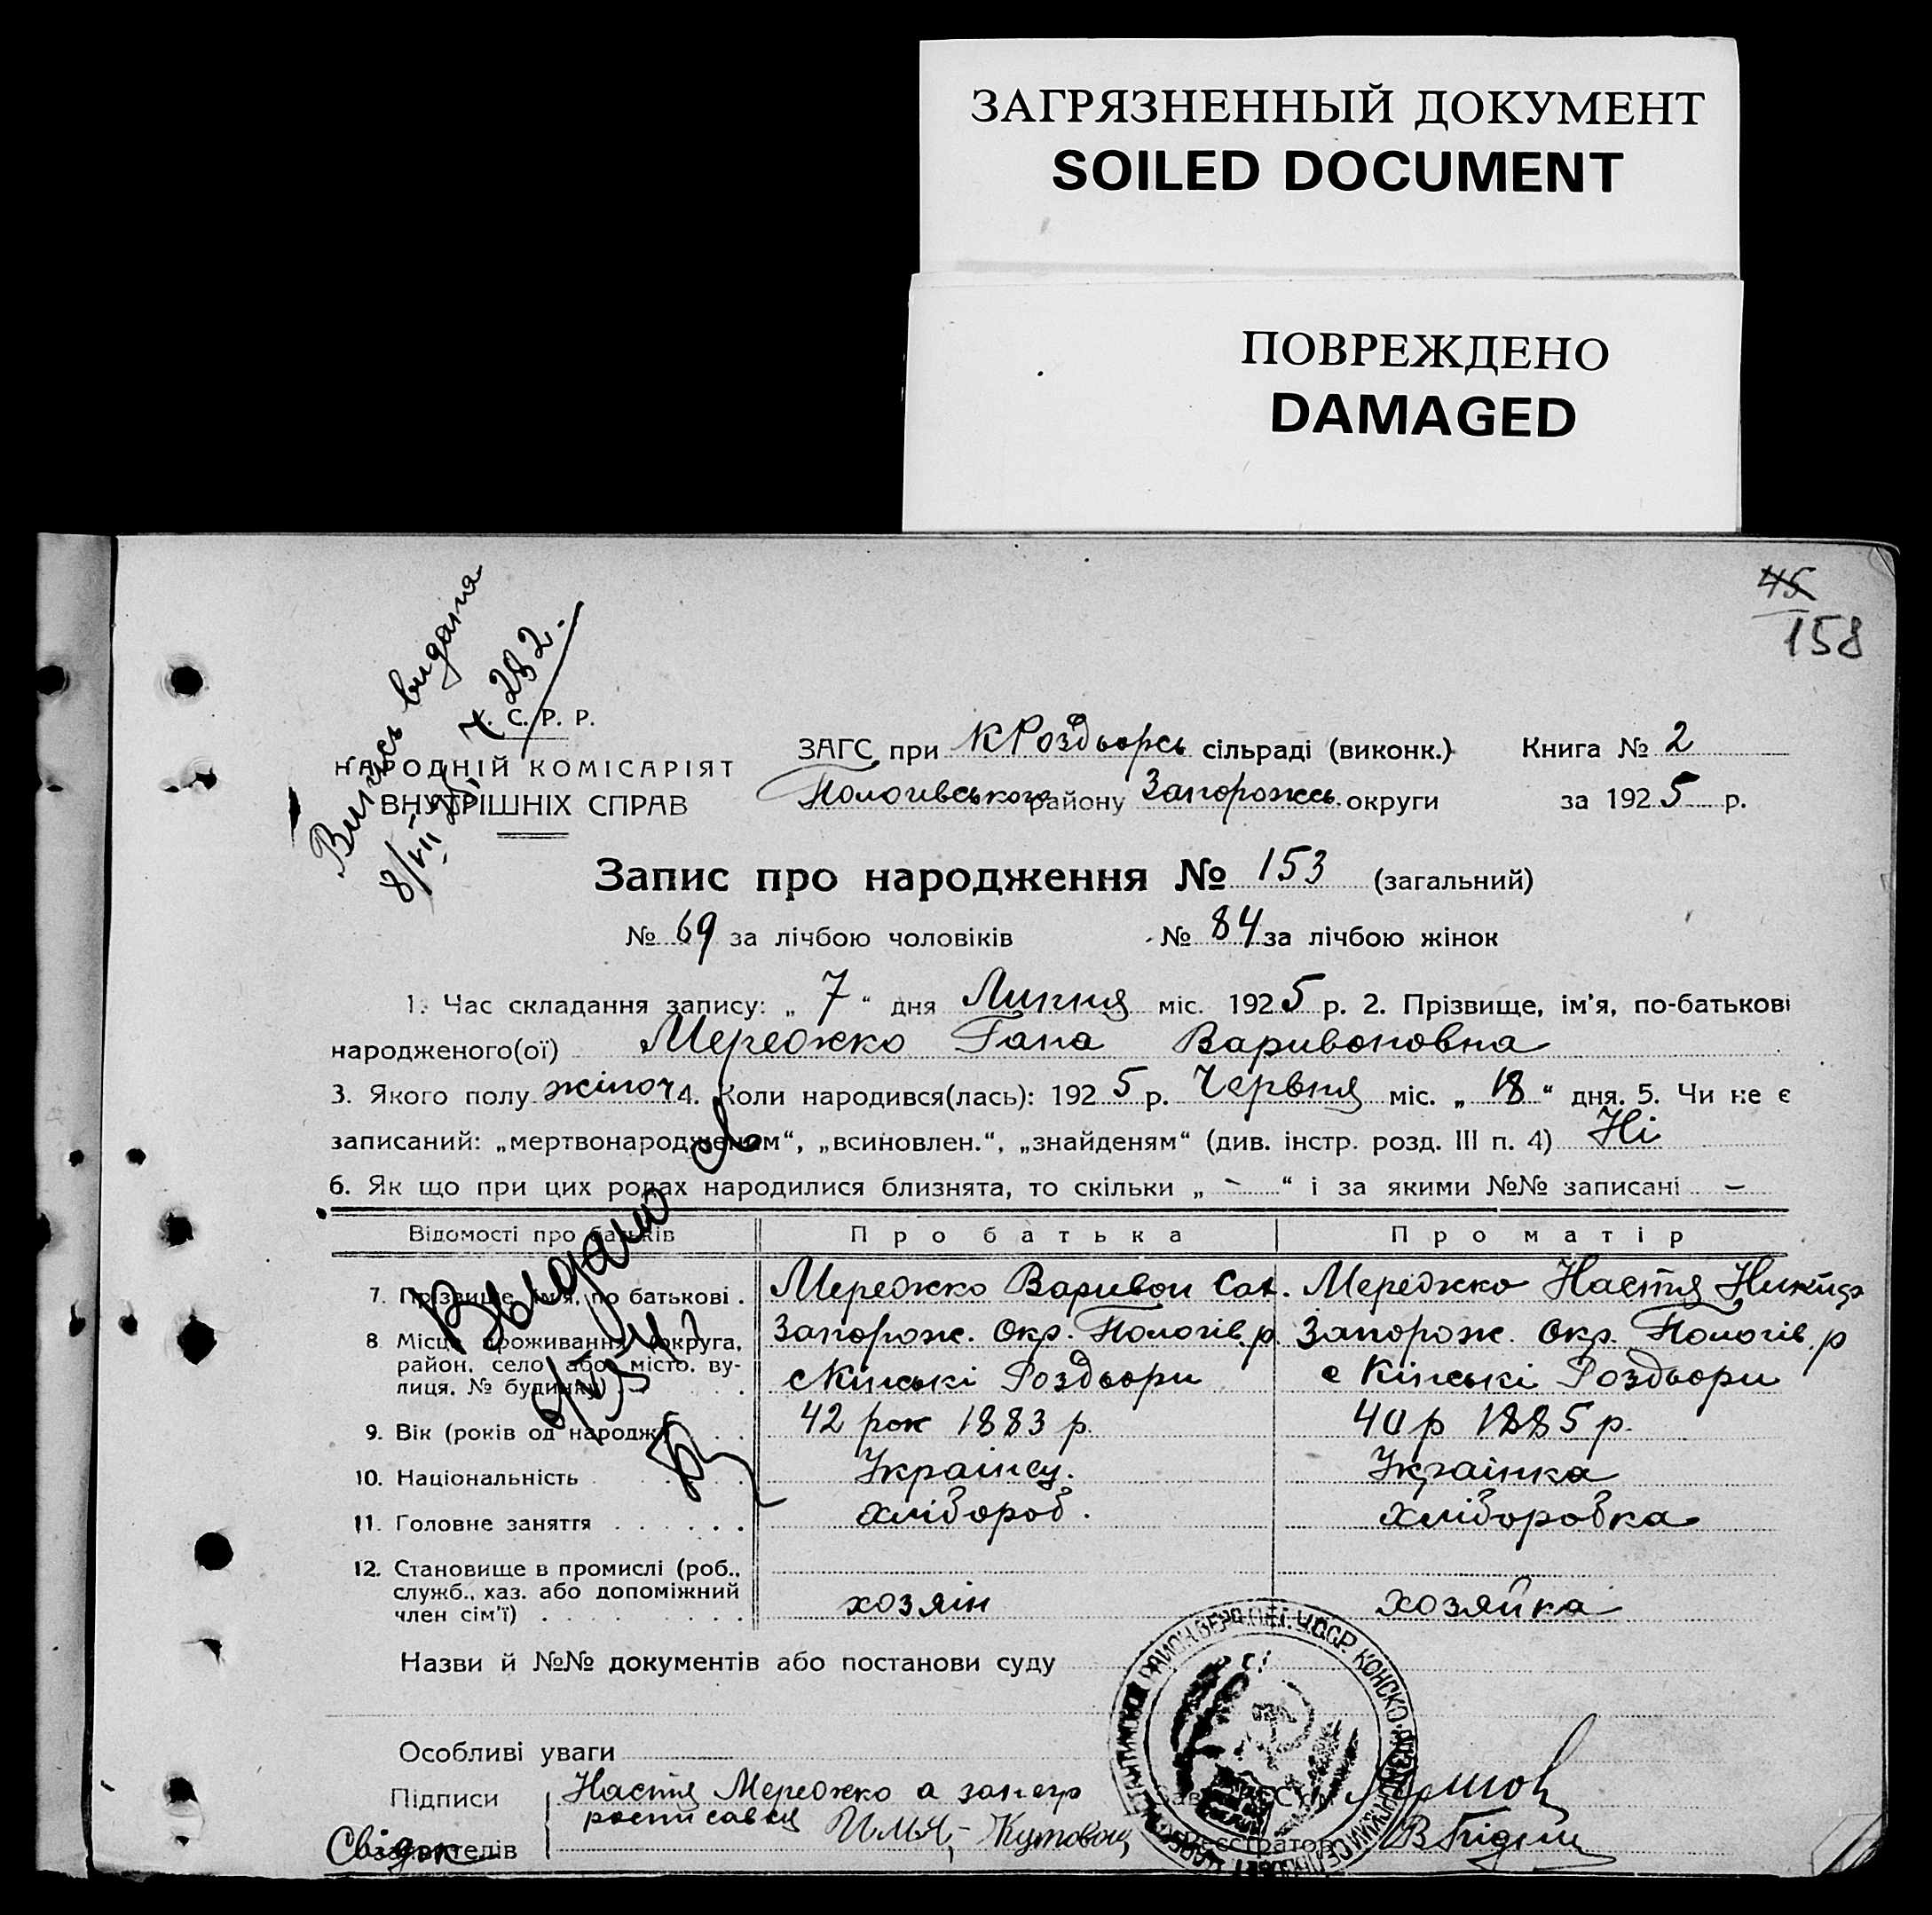 ЗАГРЯЗНЕННЫЙ ДОКУМЕНТ
SOILED DOCUMENT
ПОВРЕЖДЕНО
DAMAGED
45
158
Випись видана
8/VII 25, Ч 282.
У. С. Р. Р.
НАРОДНІЙ КОМІСАРІЯТ
ВНУТРІШНІХ СПРАВ
ЗАГС при К Роздворсь сільраді (виконк.) Книга № 2
Пологивського району Запорожсь. округи за 1925 р.
Запис про народження № 153 (загальний)
№ 69 за лічбою чоловіків № 84 за лічбою жінок
1. Час складання запису: „ 7 “ дня Липня міс. 1925 р. 2. Прізвище, ім’я, по-батькові
народженого(ої) Мережко Гана Варивоновна
3. Якого полу жіноч 4. Коли народився(лась): 1925 р. Червня міс. „ 18 “ дня. 5. Чи не є
записаний: „мертвонародженим“, „всиновлен.“, „знайденям“ (див. інстр. розд. III п. 4) Ні
6. Як що при цих родах народилися близнята, то скільки „ - “ і за якими №№ записані -
Відомості про батьків Про батька Про матір
7. Прізвище, ім’я, по батькові . Мережко Варивон Сав. Мережко Настя Никиф
8 Місце проживання (округа, Запорож. Окр. Пологів. р. Запорож. Окр. Пологів. р
район, село або місто, ву- с Кинські Роздори с Кінські Роздори
лиця, № будинку)
9. Вік (років од народж.) 42 рок 1883 р. 40 р 1885 р.
10. Національність Українец. Українка
11. Головне заняття хлібороб. хлібороbка
12. Становище в промислі (роб.,
служб., хаз. або допоміжний хозяін хозяйка
член сім’ї)
Видано
Назви й №№ документів або постанови суду
Особливі уваги
Підписи Настя Мережко а за негр
росписався Илія,
Свідки
Реєстратор